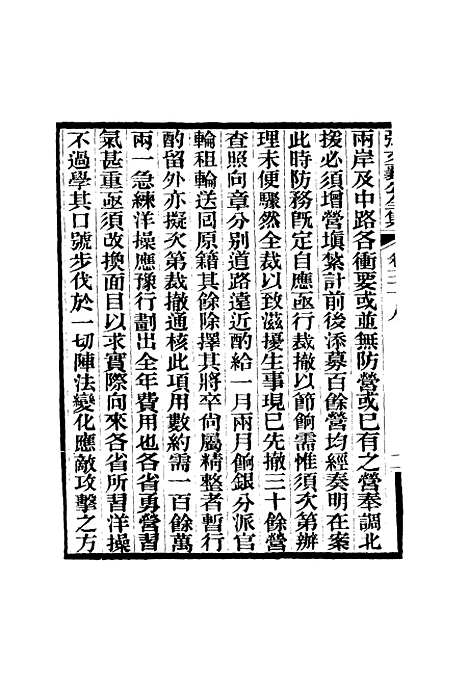 張文襄公全集 卷三十八 二
兩岸及中路各衝要或並無防營或已有之營奉調北
援必須增營塡紮計前後添募百餘營均經奏明在案
此時防務旣定自應亟行裁撤以節餉需惟須次第辦
理未便驟然全裁以致滋擾生事現已先撤三十餘營
查照向章分別道路遠近酌給一月兩月餉銀分派官
輪租輪送囘原籍其餘除擇其將卒尙屬精整者暫行
酌留外亦擬次第裁撤通核此項用數約需一百餘萬
兩一急練洋操應豫行劃出全年費用也各省勇營習
氣甚重亟須改換面目以求實際向來各省所習洋操
不過學其口號步伐於一切陣法變化應敵攻擊之方